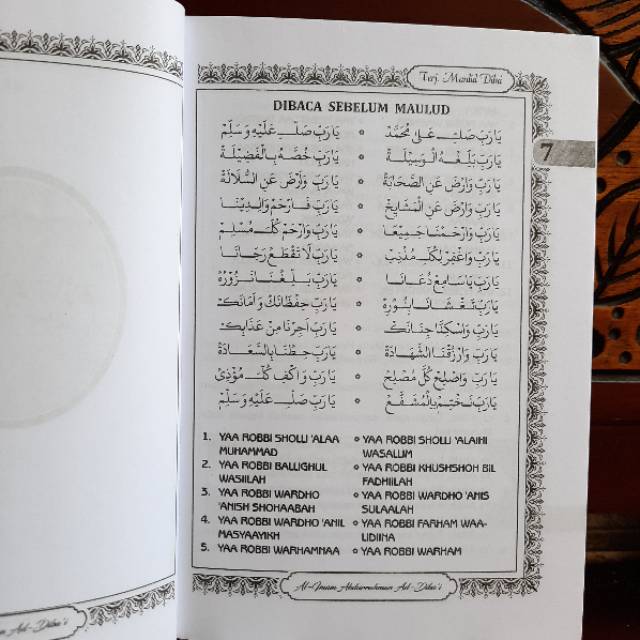 Terj. Maulid Diba'
7
DIBACA SEBELUM MAULUD
يَا رَبِّ صَلِّ عَلَى مُحَمَّدْ ۞ يَا رَبِّ صَلِّ عَلَيْهِ وَسَلِّمْ
يَا رَبِّ بَلِّغْهُ الْوَسِيْلَةْ ۞ يَا رَبِّ خُصَّهُ بِالْفَضِيْلَةْ
يَا رَبِّ وَارْضَ عَنِ الصَّحَابَةْ ۞ يَا رَبِّ وَارْضَ عَنِ السُّلَالَةْ
يَا رَبِّ وَارْضَ عَنِ الْمَشَايِخْ ۞ يَا رَبِّ فَارْحَمْ وَالِدِيْنَا
يَا رَبِّ وَارْحَمْنَا جَمِيْعًا ۞ يَا رَبِّ وَارْحَمْ كُلَّ مُسْلِمْ
يَا رَبِّ وَاغْفِرْ لِكُلِّ مُذْنِبْ ۞ يَا رَبِّ لَا تَقْطَعْ رَجَانَا
يَا رَبِّ يَا سَامِعْ دُعَانَا ۞ يَا رَبِّ بَلِّغْنَا نَزُوْرُهْ
يَا رَبِّ تَغْشَانَا بِنُوْرِهْ ۞ يَا رَبِّ حِفْظَانَكْ وَاَمَانَكْ
يَا رَبِّ وَاسْكِنَّا جِنَانَكْ ۞ يَا رَبِّ اَجِرْنَا مِنْ عَذَابِكْ
يَا رَبِّ وَارْزُقْنَا الشَّهَادَةْ ۞ يَا رَبِّ حِطْنَا بِالسَّعَادَةْ
يَا رَبِّ وَاصْلِحْ كُلَّ مُصْلِحْ ۞ يَا رَبِّ وَاكْفِ كُلَّ مُؤْذِيْ
يَا رَبِّ نَخْتِمْ بِالْمُشَفَّعْ ۞ يَا رَبِّ صَلِّ عَلَيْهِ وَسَلِّمْ
1. YAA ROBBI SHOLLI 'ALAA MUHAMMAD
YAA ROBBI SHOLLI 'ALAIHI WASALLIM
2. YAA ROBBI BALLIGHUL WASIILAH
YAA ROBBI KHUSHSHOH BIL FADHIILAH
3. YAA ROBBI WARDHO 'ANISH SHOHAABAH
YAA ROBBI WARDHO 'ANIS SULAALAH
4. YAA ROBBI WARDHO 'ANIL MASYAAYIKH
YAA ROBBI FARHAM WAA-LIDIINA
5. YAA ROBBI WARHAMNAA
YAA ROBBI WARHAM
Al-Imam Abdurrahman Ad-Diba'i
Ad-Diba'i